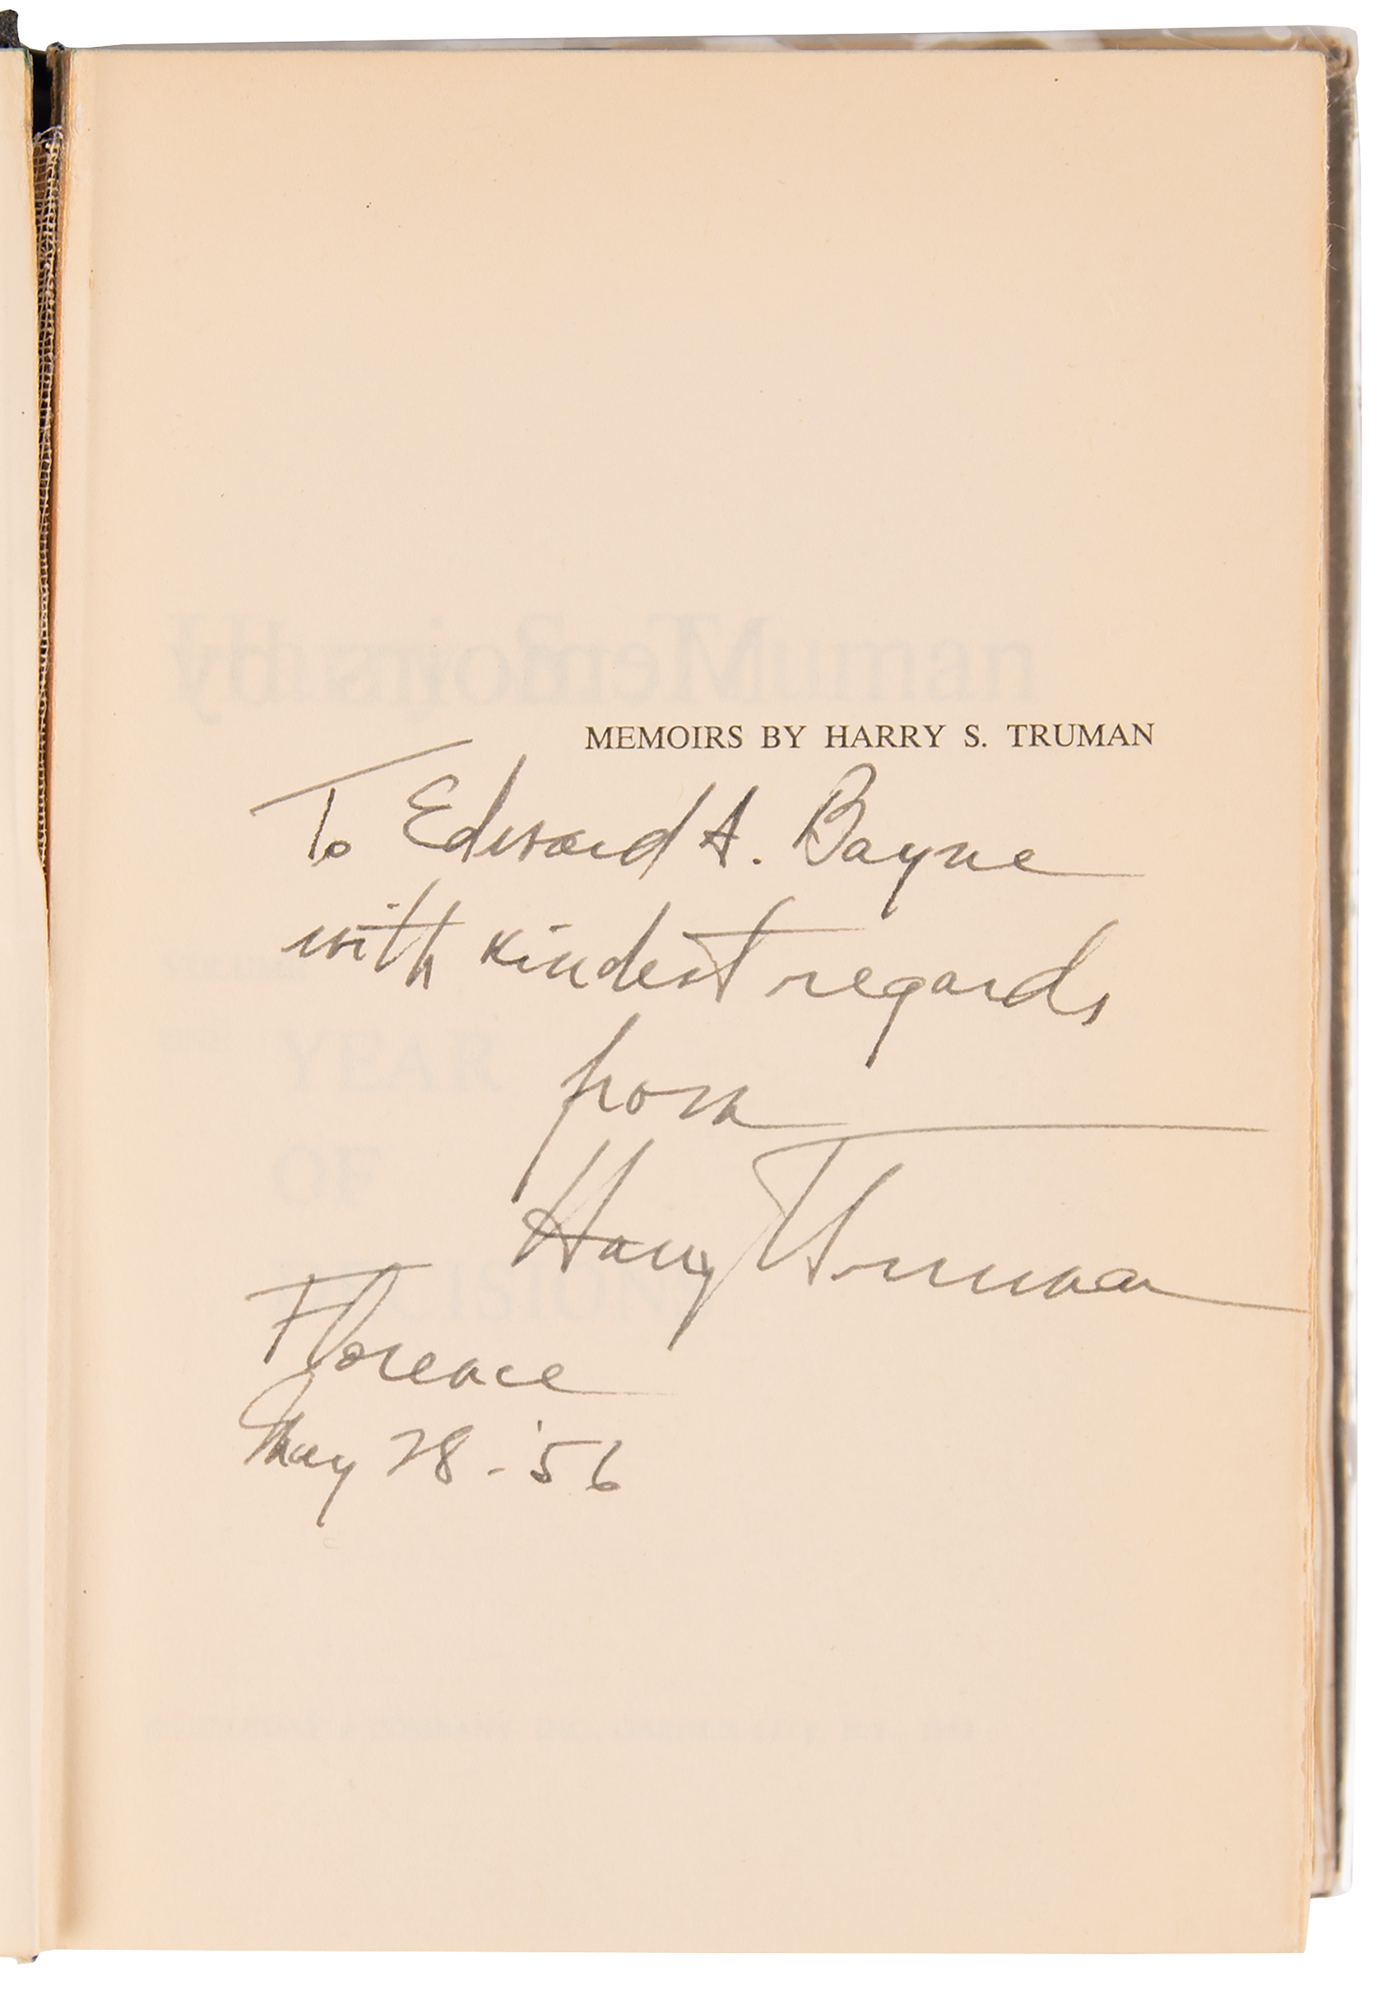 MEMOIRS BY HARRY S. TRUMAN
To Edward A. Bayne
with kindest regards
from
Harry S Truman
Florence
May 28 - '56
YEAR
OF